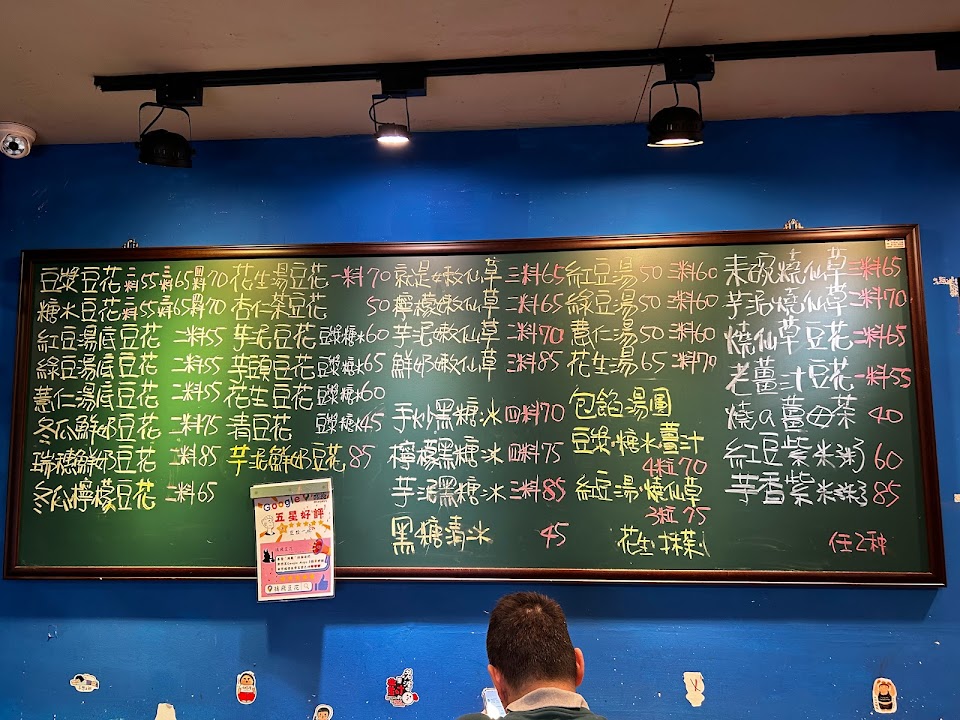 豆漿豆花 二料55 三料65 四料70
糖水豆花 二料55 三料65 四料70
紅豆湯底豆花 二料55
綠豆湯底豆花 二料55
薏仁湯底豆花 二料55
冬瓜鮮奶豆花 二料75
瑞穗鮮奶豆花 二料85
冬瓜檸檬豆花 二料65
花生湯豆花 一料70
杏仁茶豆花 50
芋泥豆花 豆漿糖水60
芋頭豆花 豆漿糖水65
花生豆花 豆漿糖水60
青豆花 豆漿糖水45
芋泥鮮奶豆花85
就是嫩仙草 三料65
檸檬嫩仙草 三料65
芋泥嫩仙草 三料70
鮮奶嫩仙草 三料85
手炒黑糖冰 四料70
檸檬黑糖冰 四料75
芋泥黑糖冰 三料85
黑糖清冰 45
紅豆湯50 三料60
綠豆湯50 三料60
薏仁湯50 三料60
花生湯65 三料70
包餡湯圓
豆漿·糖水·薑汁
4粒70
紅豆湯·燒仙草
3粒75
花生·抹茶
燒仙草 三料65
芋泥燒仙草 三料70
燒仙草豆花 三料65
老薑汁豆花 一料55
燒の薑母茶 40
紅豆紫米粥 60
芋香紫米粥 85
任2種
Google
五星好評